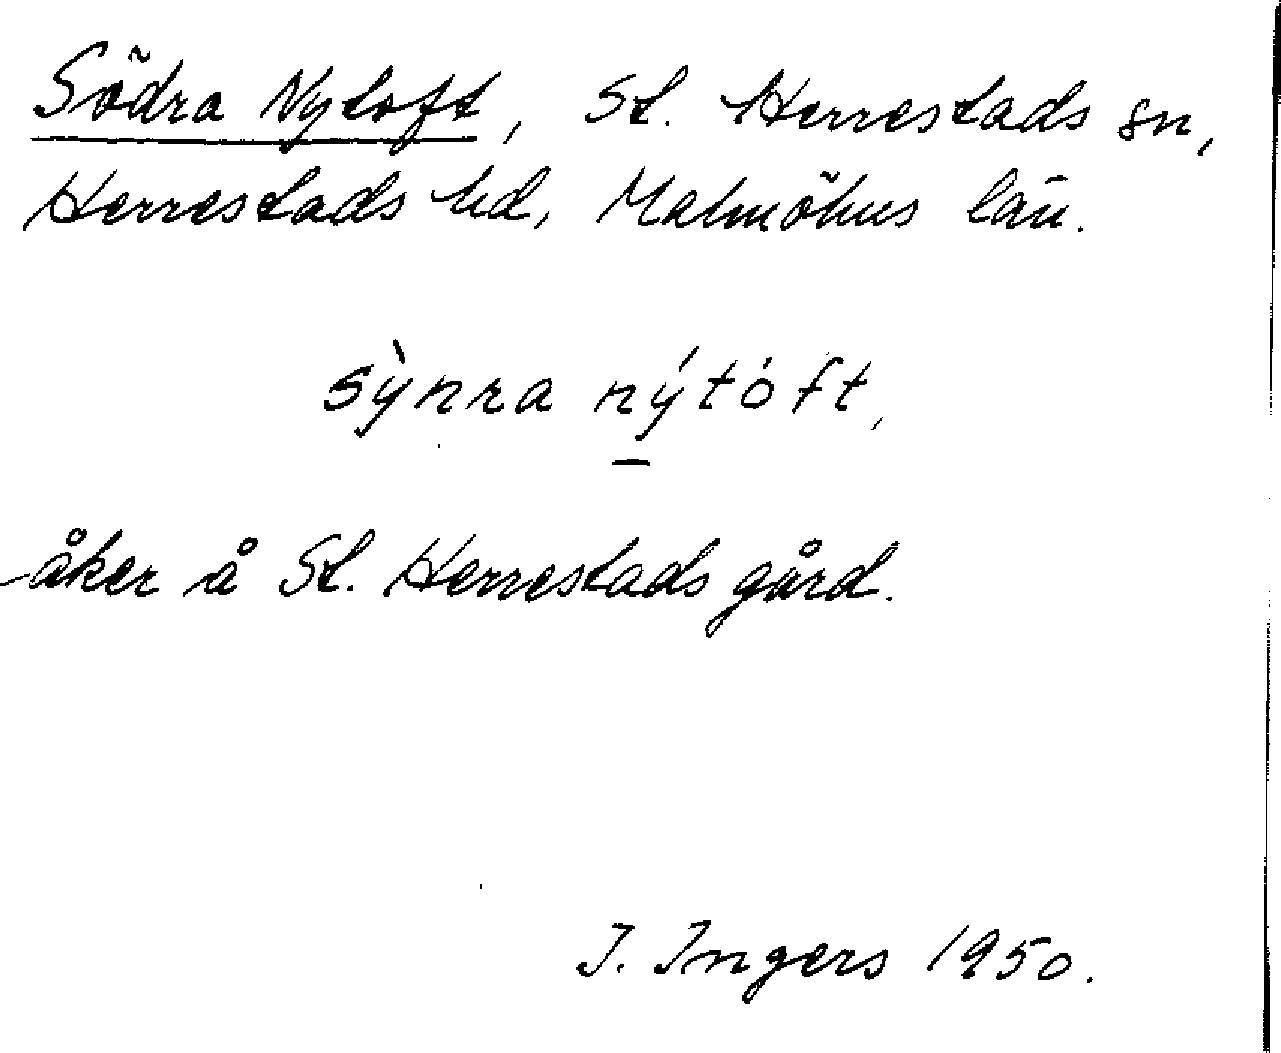 Södra Nytoft, St. Herrestads sn,
Herrestads hd, Malmöhus län.
sỳnra nýtóft,
åker å St. Herrestads gård.
I. Ingers 1950.